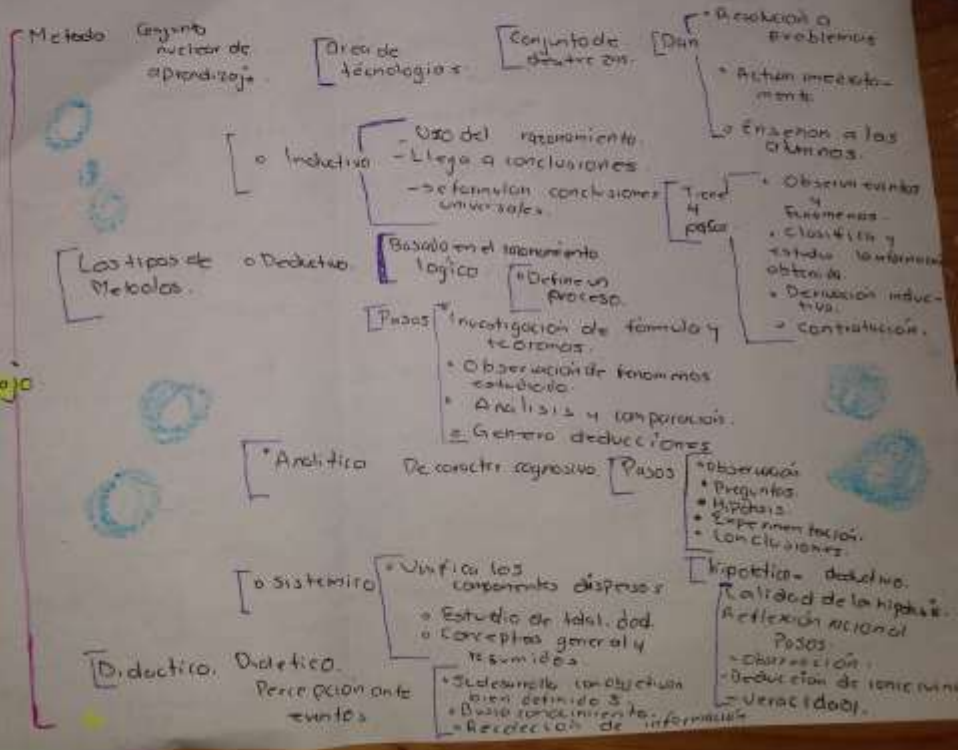 Metodo
Conjunto
nuclear de
aprendizaje.
Area de
técnologias.
Conjunto de
Dan
• Resolución a
Problemas
• Actuan
mente
o Enseñan a los
alumnos.
o Inductivo
- Uso del razonamiento.
- Llega a conclusiones.
- Se formulan conclusiones
universales.
Tiene
4
pasos
• Observan eventos
y
Fenomenos.
• Clasifica y
estudia la información
obtenida.
• Derivación induc-
tiva.
o Contratación.
Los tipos de
Metodos.
o Deductivo.
Basado en el razonamiento
logico
• Define un
proceso.
Pasos
• Investigación de formula y
teoremas.
• Observación de fenomenos
estudiado.
• Analisis y comparación.
Genero deducciones
• Analitico
De caracter cognosivo.
Pasos
• Observación
• Preguntas.
• Hipotesis.
• Experimentación.
• Conclusiones.
o Sistemico
• Unifica los
componentes dispersos
o Estudio de totalidad.
o Conceptos general y
resumidos.
hipotetico- deductivo.
Calidad de la hipotesis.
Reflexión racional
Pasos.
- Observación.
- Deducción de
- Veracidad.
Didactico.
Percepción ante
eventos
• Se desarrolla con objetivos
bien definidos.
• Busca conocimiento.
- Recolección de información